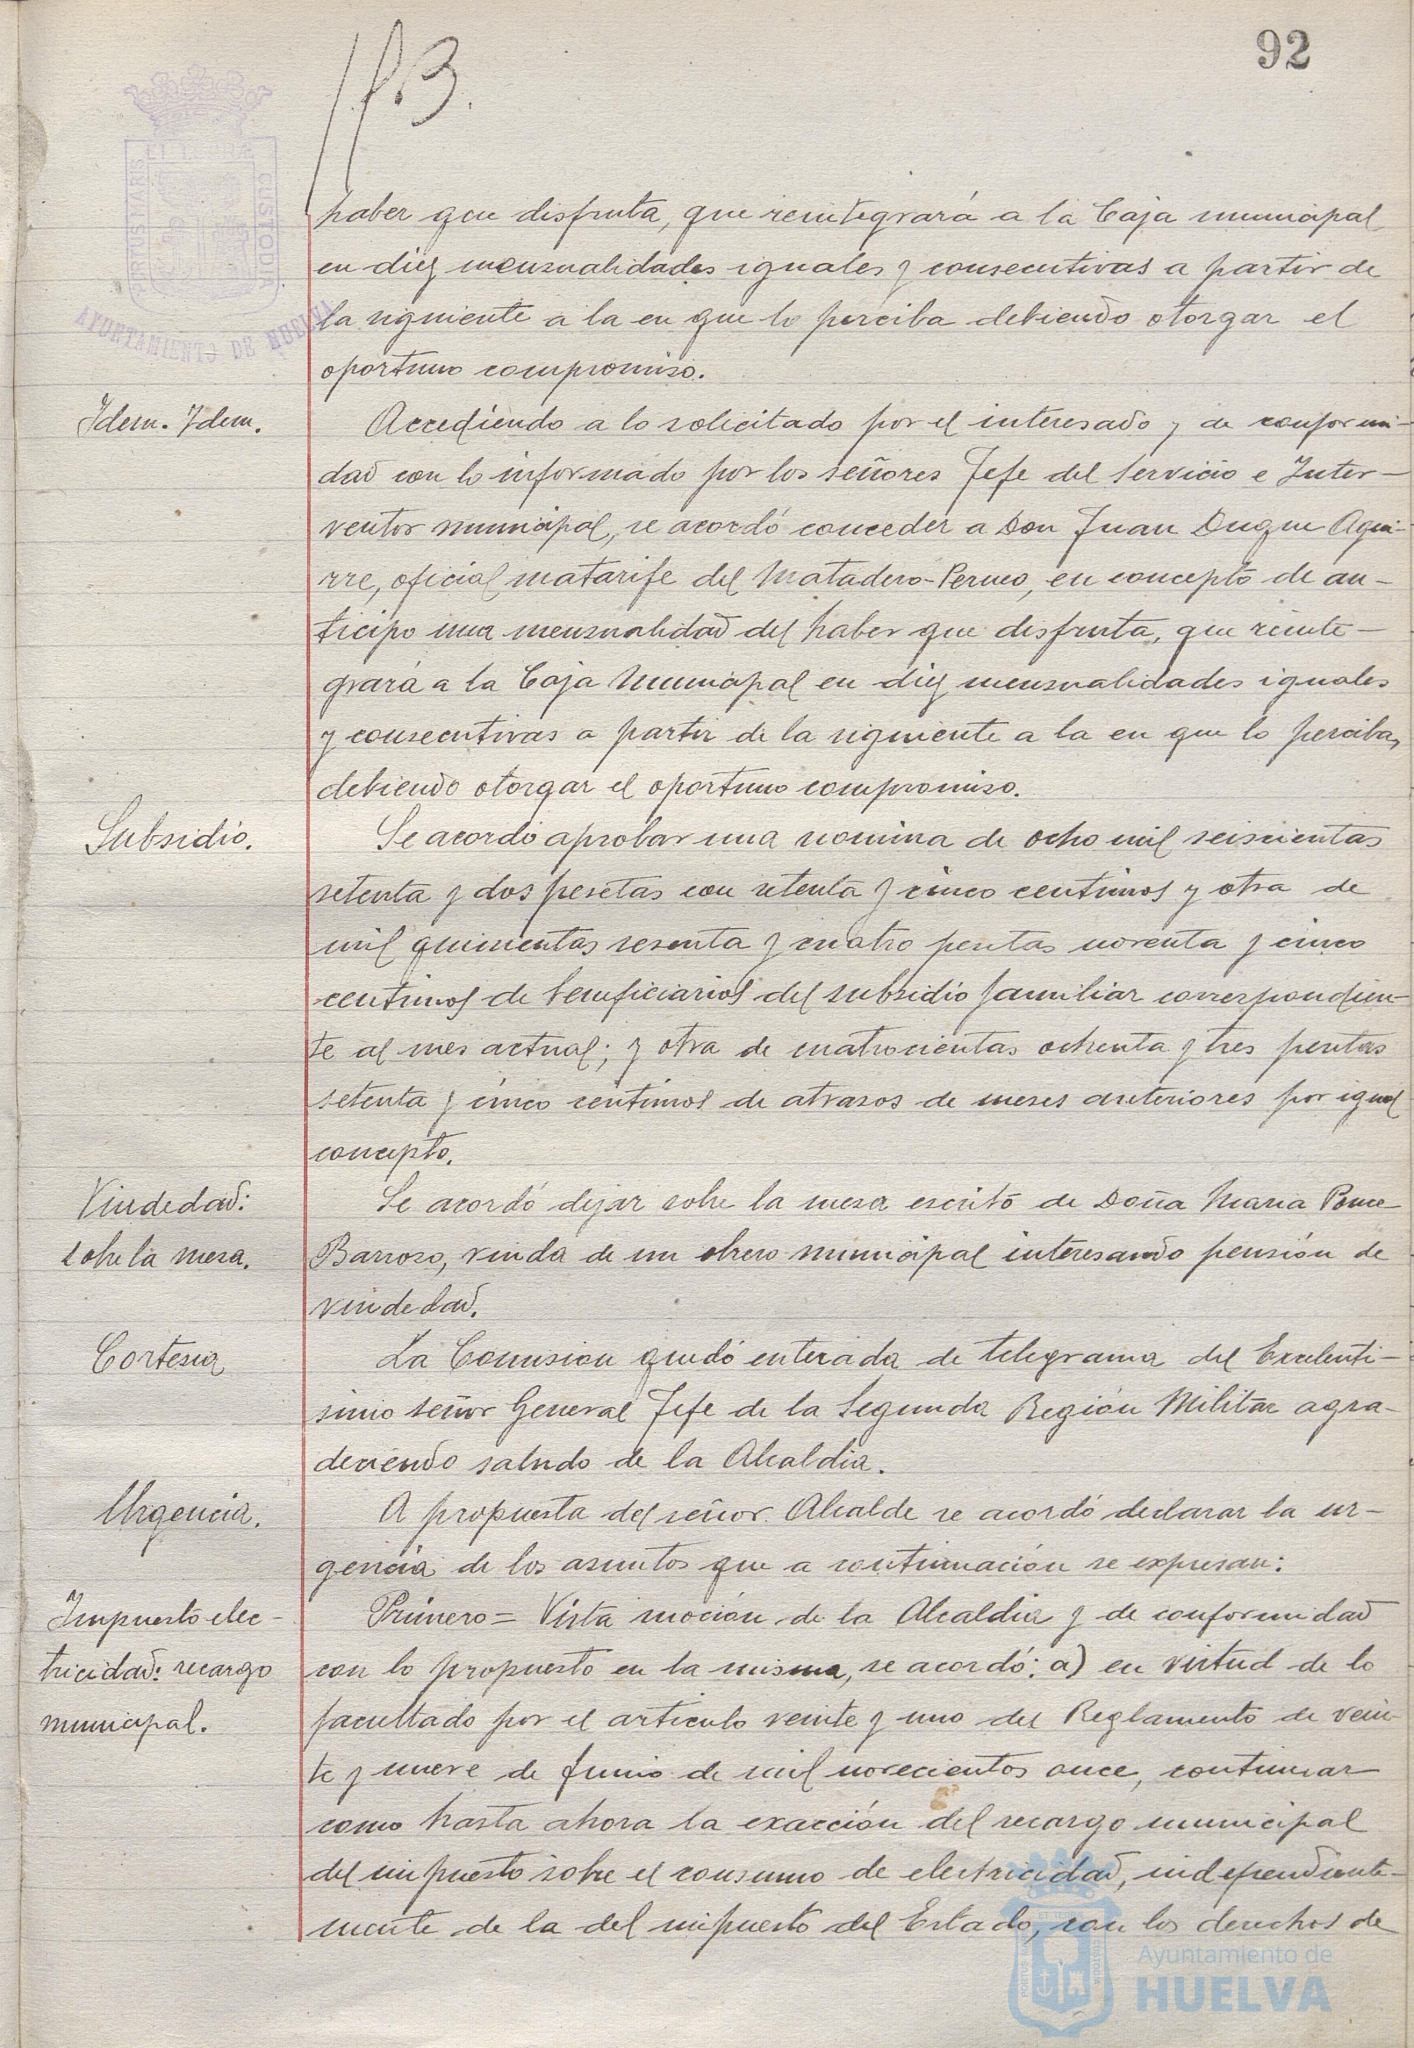 92
PORTUS MARIS
ET TERRÆ
CUSTODIA
AYUNTAMIENTO DE HUELVA
haber que disfruta, que reintegrará a la Caja municipal
en diez mensualidades iguales y consecutivas a partir de
la siguiente a la en que lo perciba debiendo otorgar el
oportuno compromiso.
Idem. Idem.
Accediendo a lo solicitado por el interesado y de conformi-
dad con lo informado por los señores Jefe del Servicio e Inter-
ventor municipal, se acordó conceder a Don Juan Duque Agui-
rre, oficial matarife del Matadero-Perneo, en concepto de an-
ticipo una mensualidad del haber que disfruta, que reinte-
grará a la Caja Municipal en diez mensualidades iguales
y consecutivas a partir de la siguiente a la en que lo perciba,
debiendo otorgar el oportuno compromiso.
Subsidio.
Se acordó aprobar una nomina de ocho mil seiscientas
setenta y dos pesetas con setenta y cinco centimos y otra de
mil quinientas sesenta y cuatro pesetas noventa y cinco
centimos de beneficiarios del subsidio familiar correspondien-
te al mes actual; y otra de cuatrocientas ochenta y tres pesetas
setenta y cinco centimos de atrasos de meses anteriores por igual
concepto.
Viudedad:
sobre la mesa.
Se acordó dejar sobre la mesa escrito de Doña Maria Ponce
Barroso, viuda de un obrero municipal interesando pensión de
viudedad.
Cortesia
La Comision quedó enterada de telegrama del Excelenti-
simo señor General Jefe de la Segunda Región Militar agra-
deciendo saludo de la Alcaldia.
Urgencia.
A propuesta del señor Alcalde se acordó declarar la ur-
gencia de los asuntos que a continuación se expresan:
Impuesto elec-
tricidad: recargo
municipal.
Primero = Vista moción de la Alcaldia y de conformidad
con lo propuesto en la misma, se acordó: a) en virtud de lo
facultado por el articulo veinte y uno del Reglamento de vein-
te y nueve de Junio de mil novecientos once, continuar
como hasta ahora la exacción del recargo municipal
del impuesto sobre el consumo de electricidad, independiente-
mente de la del impuesto del Estado, con los derechos de
Ayuntamiento de
HUELVA